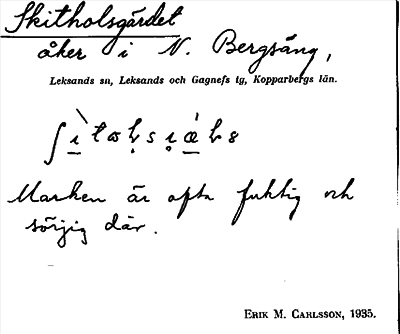 Skitholsgärdet
åker i N. Bergsäng,
Leksands sn, Leksands och Gagnefs tg, Kopparbergs län.
Marken är ofta fuktig och
sörjig där.
ERIK M. CARLSSON, 1935.